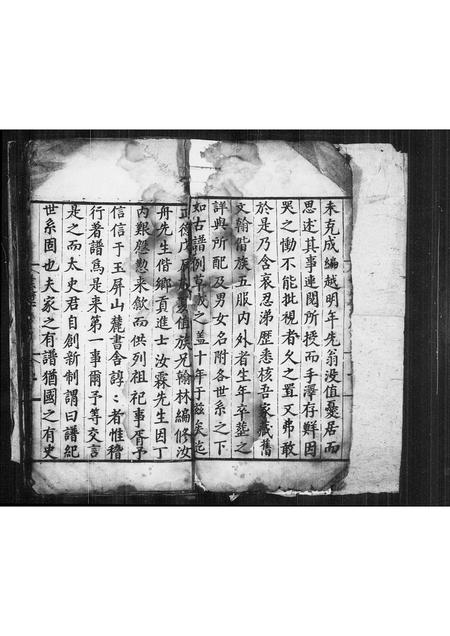 未克成編越明年先翁没值憂居而
思述其事連閱所授而手澤存鮮因
哭之慟不能批視者久之置又弗敢
於是乃含哀忍涕歷悉核吾家藏舊
文翰偕族五服内外者生年卒塟之
詳與所配及男女名附各世系之下
如古譜例草成之蓋十年于兹矣迄
正德戊辰夏值族兄翰林編修汝
舟先生偕鄉貢進士汝霖先生因丁
内艱懸愬来歙而供列祖祀事胥予
信信于玉屏山麓書舍諄〻者惟稽
行著譜爲是来第一事爾予等交言
是之而太史君自創新制謂曰譜紀
世系固也夫家之有譜猶國之有史